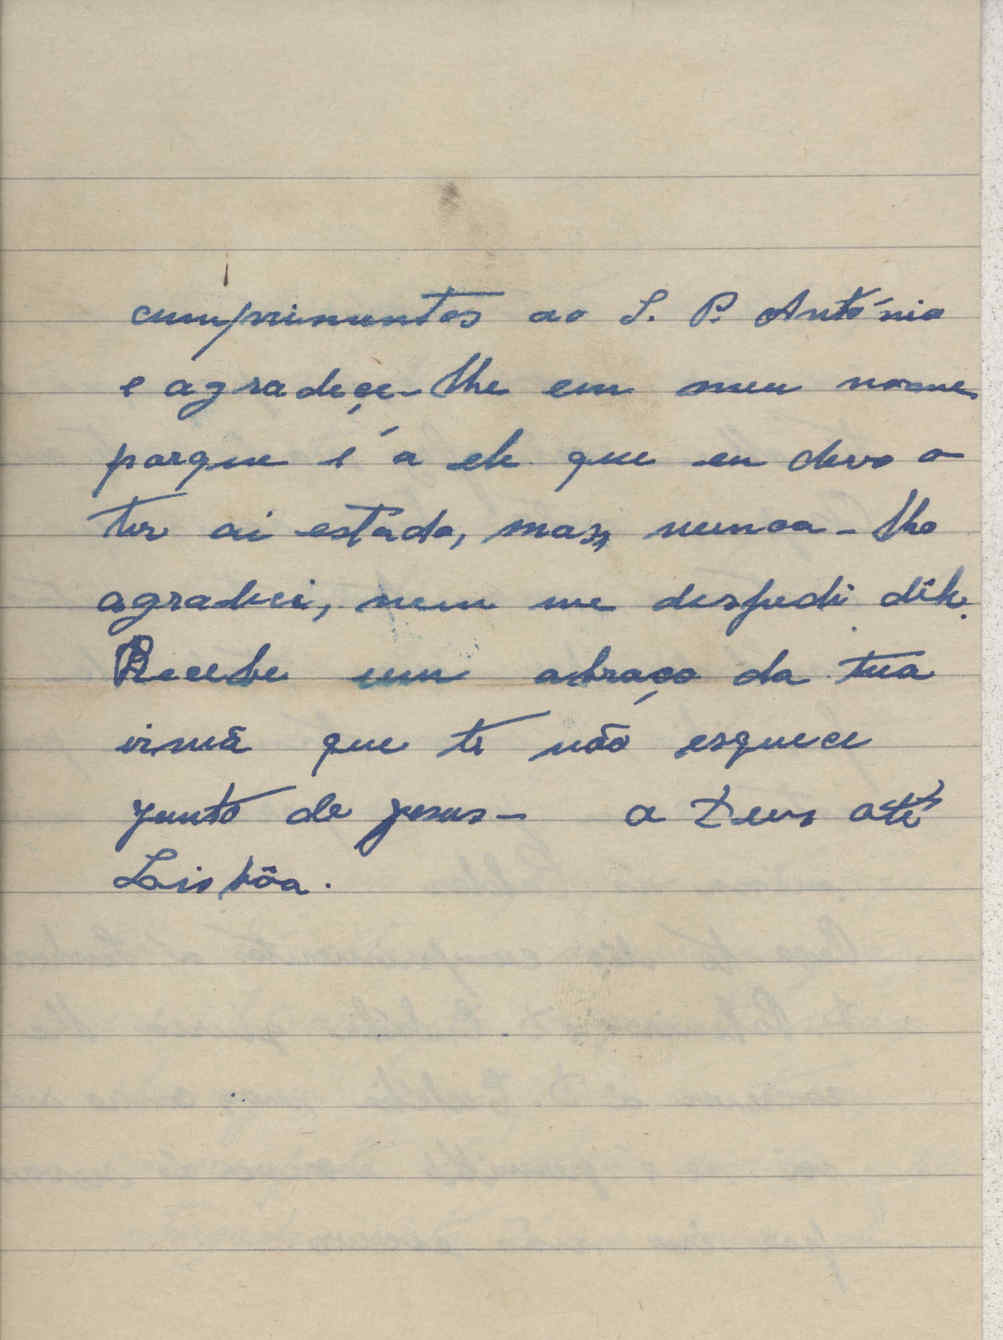 cumprimentos ao S. P. António
e agradeçe-lhe em meu nome
porque é a ele que eu devo o
ter ai estado, mas, nunca-lho
agradeci, nem me despedi dêle.
Recebe um abraço da tua
irmã que te não esquece
junto de Jesus- a Deus até
Lisbôa.